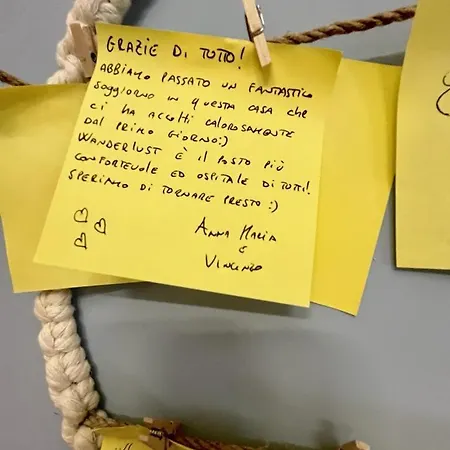 GRAZIE DI TUTTO!
ABBIAMO PASSATO UN FANTASTICO
SOGGIORNO IN QUESTA CASA CHE
CI HA ACCOLTI CALOROSAMENTE
DAL PRIMO GIORNO:)
WANDERLUST È IL POSTO PIÙ
CONFORTEVOLE ED OSPITALE DI TUTTI!
SPERIAMO DI TORNARE PRESTO :)
ANNA MARIA
E
VINCENZO